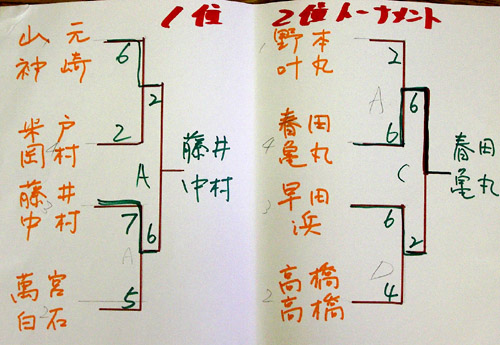 1位
2位トーナメント
山元
神崎
6
2
米戸
岡村
2
A
藤井
中村
藤井
中村
7
6
A
萬宮
白石
5
野本
叶丸
2
A
6
春田
亀丸
4
6
C
春田
亀丸
早田
浜
3
6
2
D
高橋
高橋
2
4